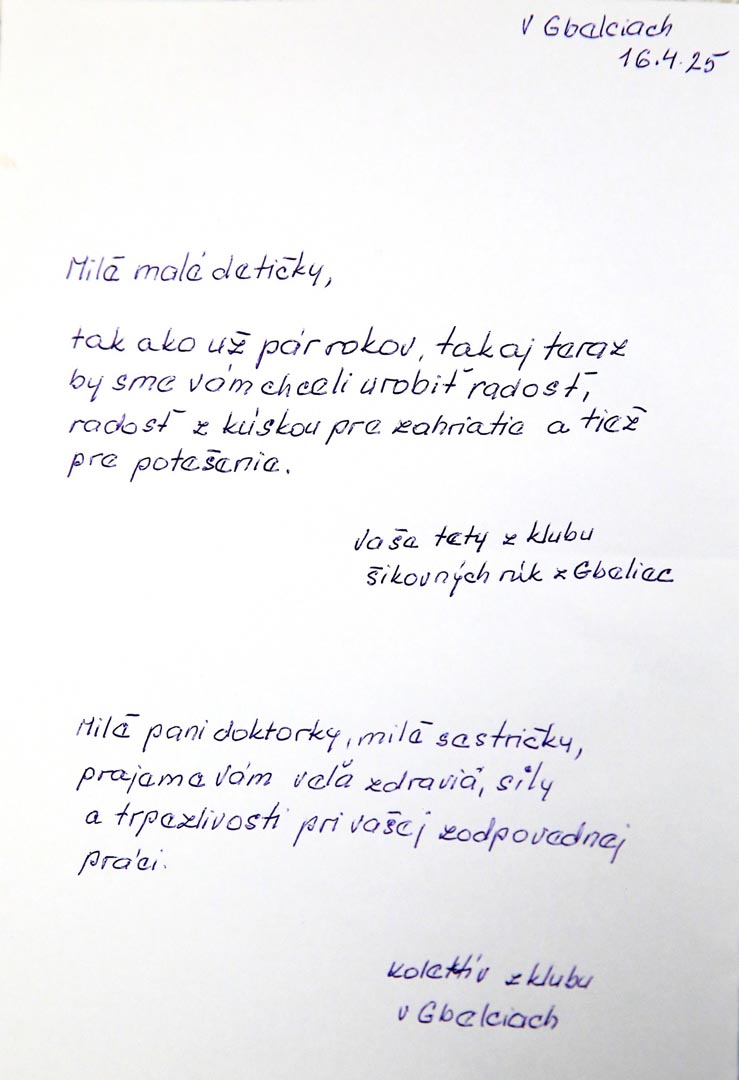 V Gbelciach
16.4.25
Milé malé detičky,
tak ako už pár rokov, tak aj teraz
by sme vám chceli urobiť radosť,
radosť z kúskou pre zahriatie a tiež
pre potešenie.
Vaše tety z klubu
šikovných rúk z Gbeliec
Milé pani doktorky, milé sestričky,
prajeme vám veľa zdravia, síly
a trpezlivosti pri vašej zodpovednej
práci.
kolektív z klubu
v Gbelciach